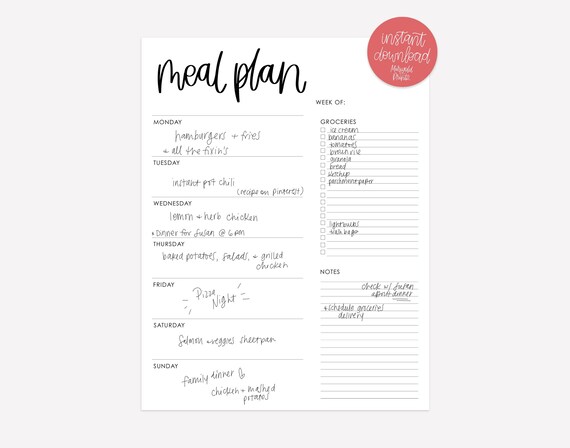 instant
download
Marigold
Prints
meal plan
WEEK OF:
MONDAY
hamburgers + fries
+ all the fixin's
TUESDAY
instant pot chili
(recipe on pinterest)
WEDNESDAY
lemon + herb chicken
* Dinner for Susan @ 6pm
THURSDAY
baked potatoes, salads, + grilled
chicken
FRIDAY
Pizza
Night
SATURDAY
Salmon + veggies sheet pan
SUNDAY
family dinner
chicken + mashed
potatos
GROCERIES
ice cream
bananas
tomatoes
brown rice
granola
bread
ketchup
parchment paper
lightbulbs
trash bags
NOTES
check w/ Susan
about dinner
* schedule groceries
delivery